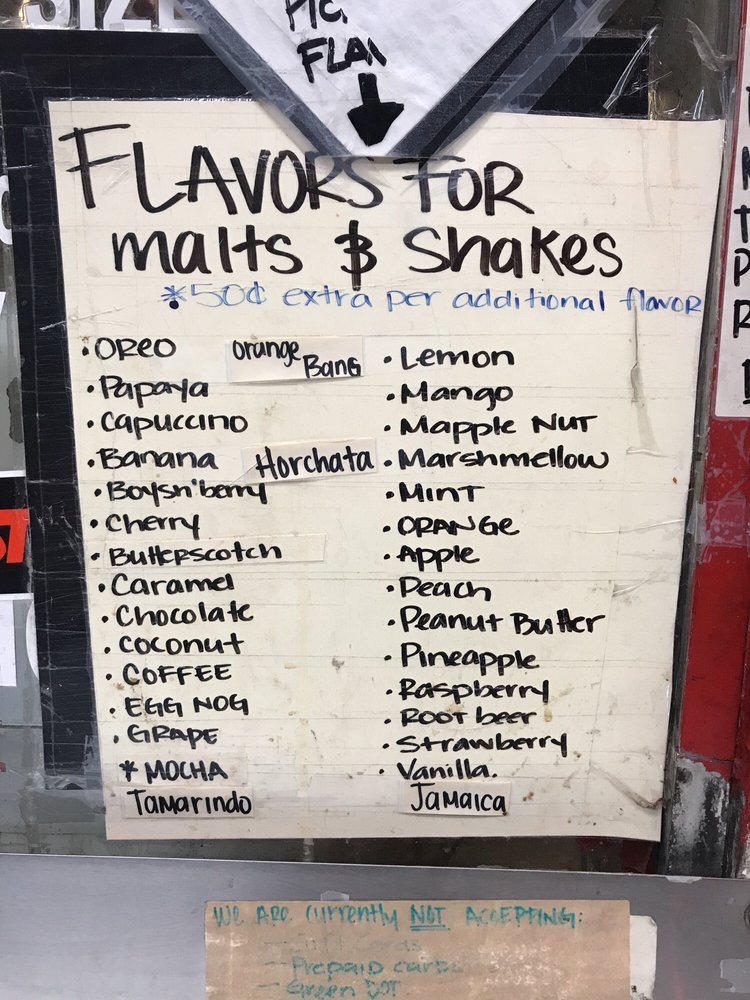 PIC.
FLAV
FLAVORS FOR
malts & Shakes
*50¢ extra per additional flavor
• OREO
Orange Bang
• Papaya
• Capuccino
• Banana
Horchata
• Boysn'berry
• Cherry
• Butterscotch
• Caramel
• Chocolate
• Coconut
• COFFEE
• EGG NOG
• GRAPE
* MOCHA
Tamarindo
• Lemon
• Mango
• Mapple Nut
• Marshmellow
• Mint
• ORANGE
• Apple
• Peach
• Peanut Butter
• Pineapple
• Raspberry
• Root beer
• Strawberry
• Vanilla.
Jamaica
We are currently NOT ACCEPTING:
- Prepaid cards
- Green DOT